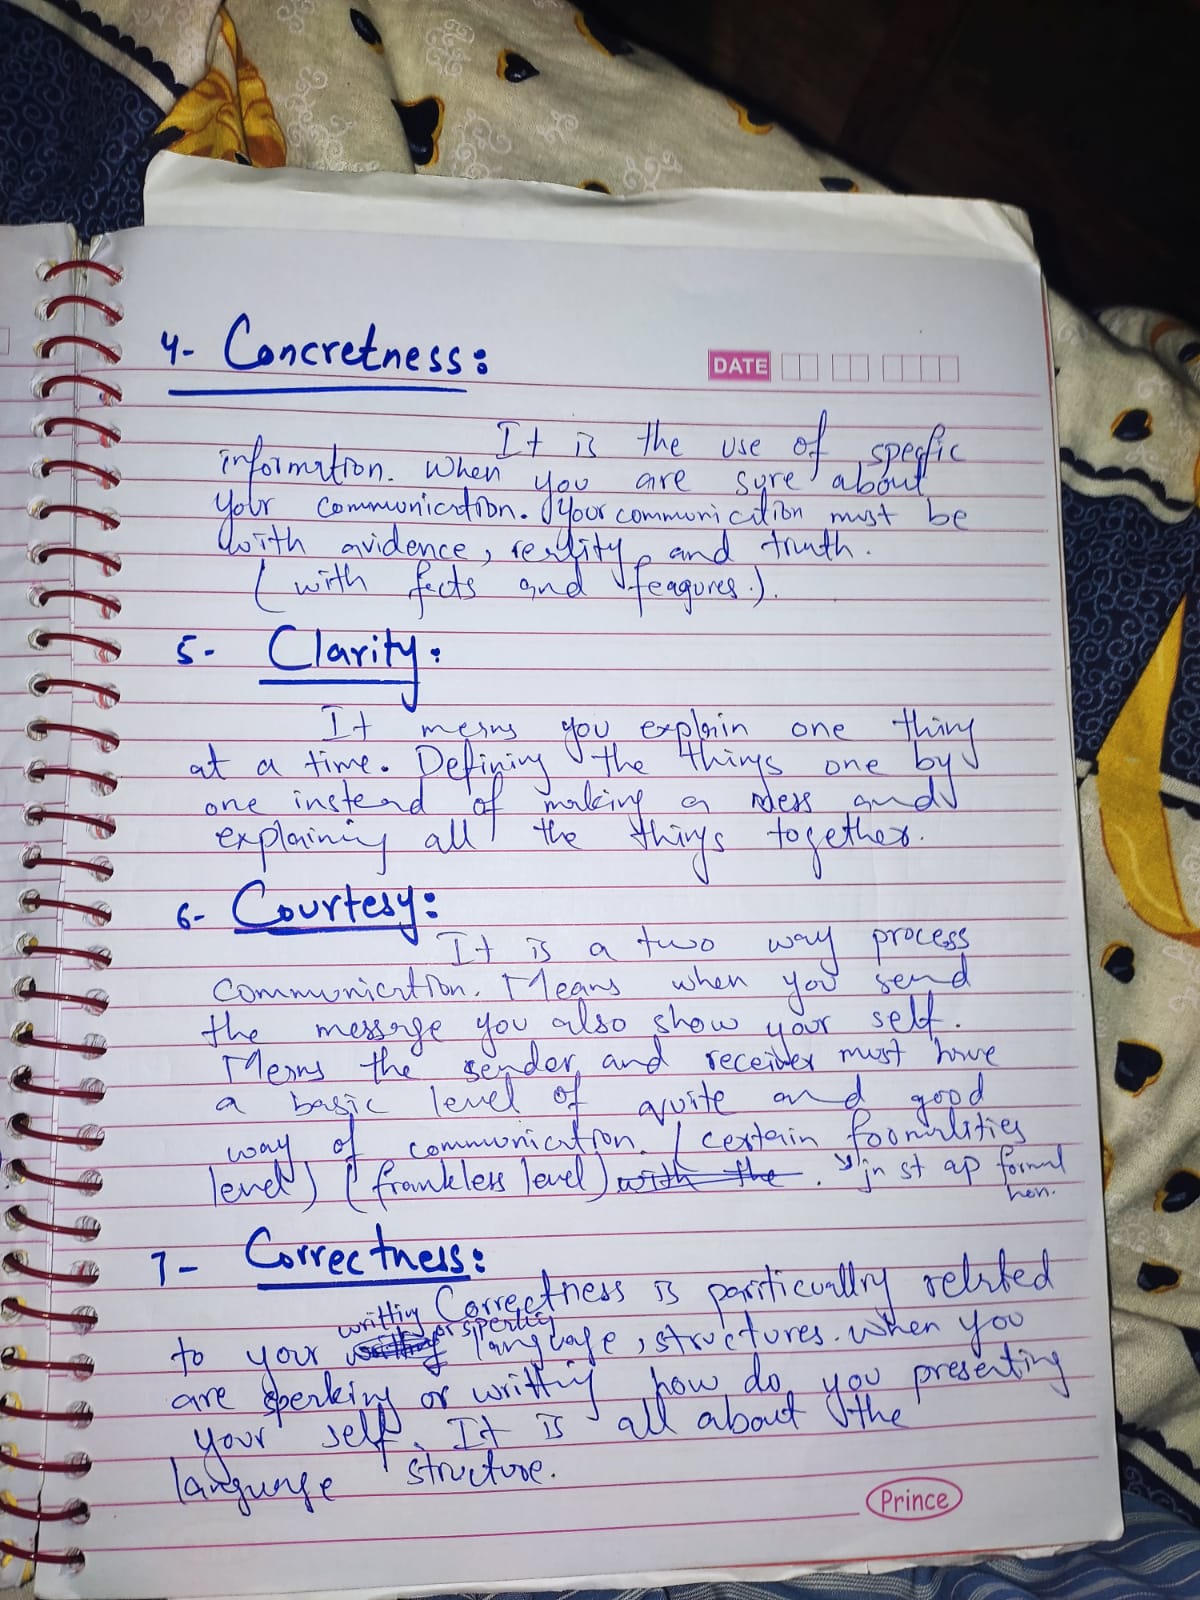 4- Concretness:
DATE
It is the use of specfic
information. When you are sure about
your communication. Your communication must be
with avidence, reality and truth.
(with facts and feagures.).
5- Clarity:
It means you explain one thing
at a time. Defining the things one by
one instead of making a mess and
explaining all the things together.
6- Courtesy:
It is a two way process
communication. Means when you send
the message you also show your self.
Means the sender and receiver must have
a basic level of quite and good
way of communication. (certain foormalities
level) (frankless level) with the. in st ap formal
7- Correctness:
Correctness is particuallry related
writting or speaking
to your language, structures. When you
are speaking or writting how do you presenting
your self. It is all about the
language structure.
Prince